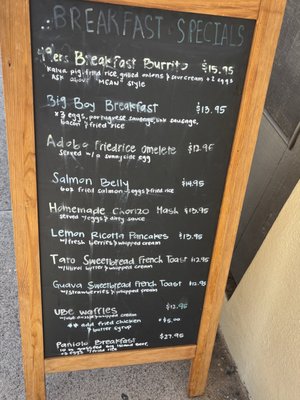 BREAKFAST SPECIALS
9ers Breakfast Burrito $15.95
Kalua pig, fried rice, grilled onions & sour cream + 2 eggs
* ASK ABOUT "MEAN" style
Big Boy Breakfast $13.95
* 3 eggs, portuguese sausage, link sausage,
bacon & fried rice
Adobo Friedrice Omelete $13.95
served w/ a sunnyside egg
Salmon Belly $14.95
6oz fried salmon + eggs & fried rice
Homemade Chorizo Mash $13.95
served w/ eggs & dirty sauce
Lemon Ricotta Pancakes $13.95
w/ fresh berries & whipped cream
Taro Sweetbread French Toast $12.95
w/ & whipped cream
Guava Sweetbread French Toast $12.95
w/ strawberries & whipped cream
UBE waffles $12.95
& whipped cream
** add fried chicken + $5.00
& butter syrup
Paniolo Breakfast $27.95
10 oz island
2 eggs & fried rice